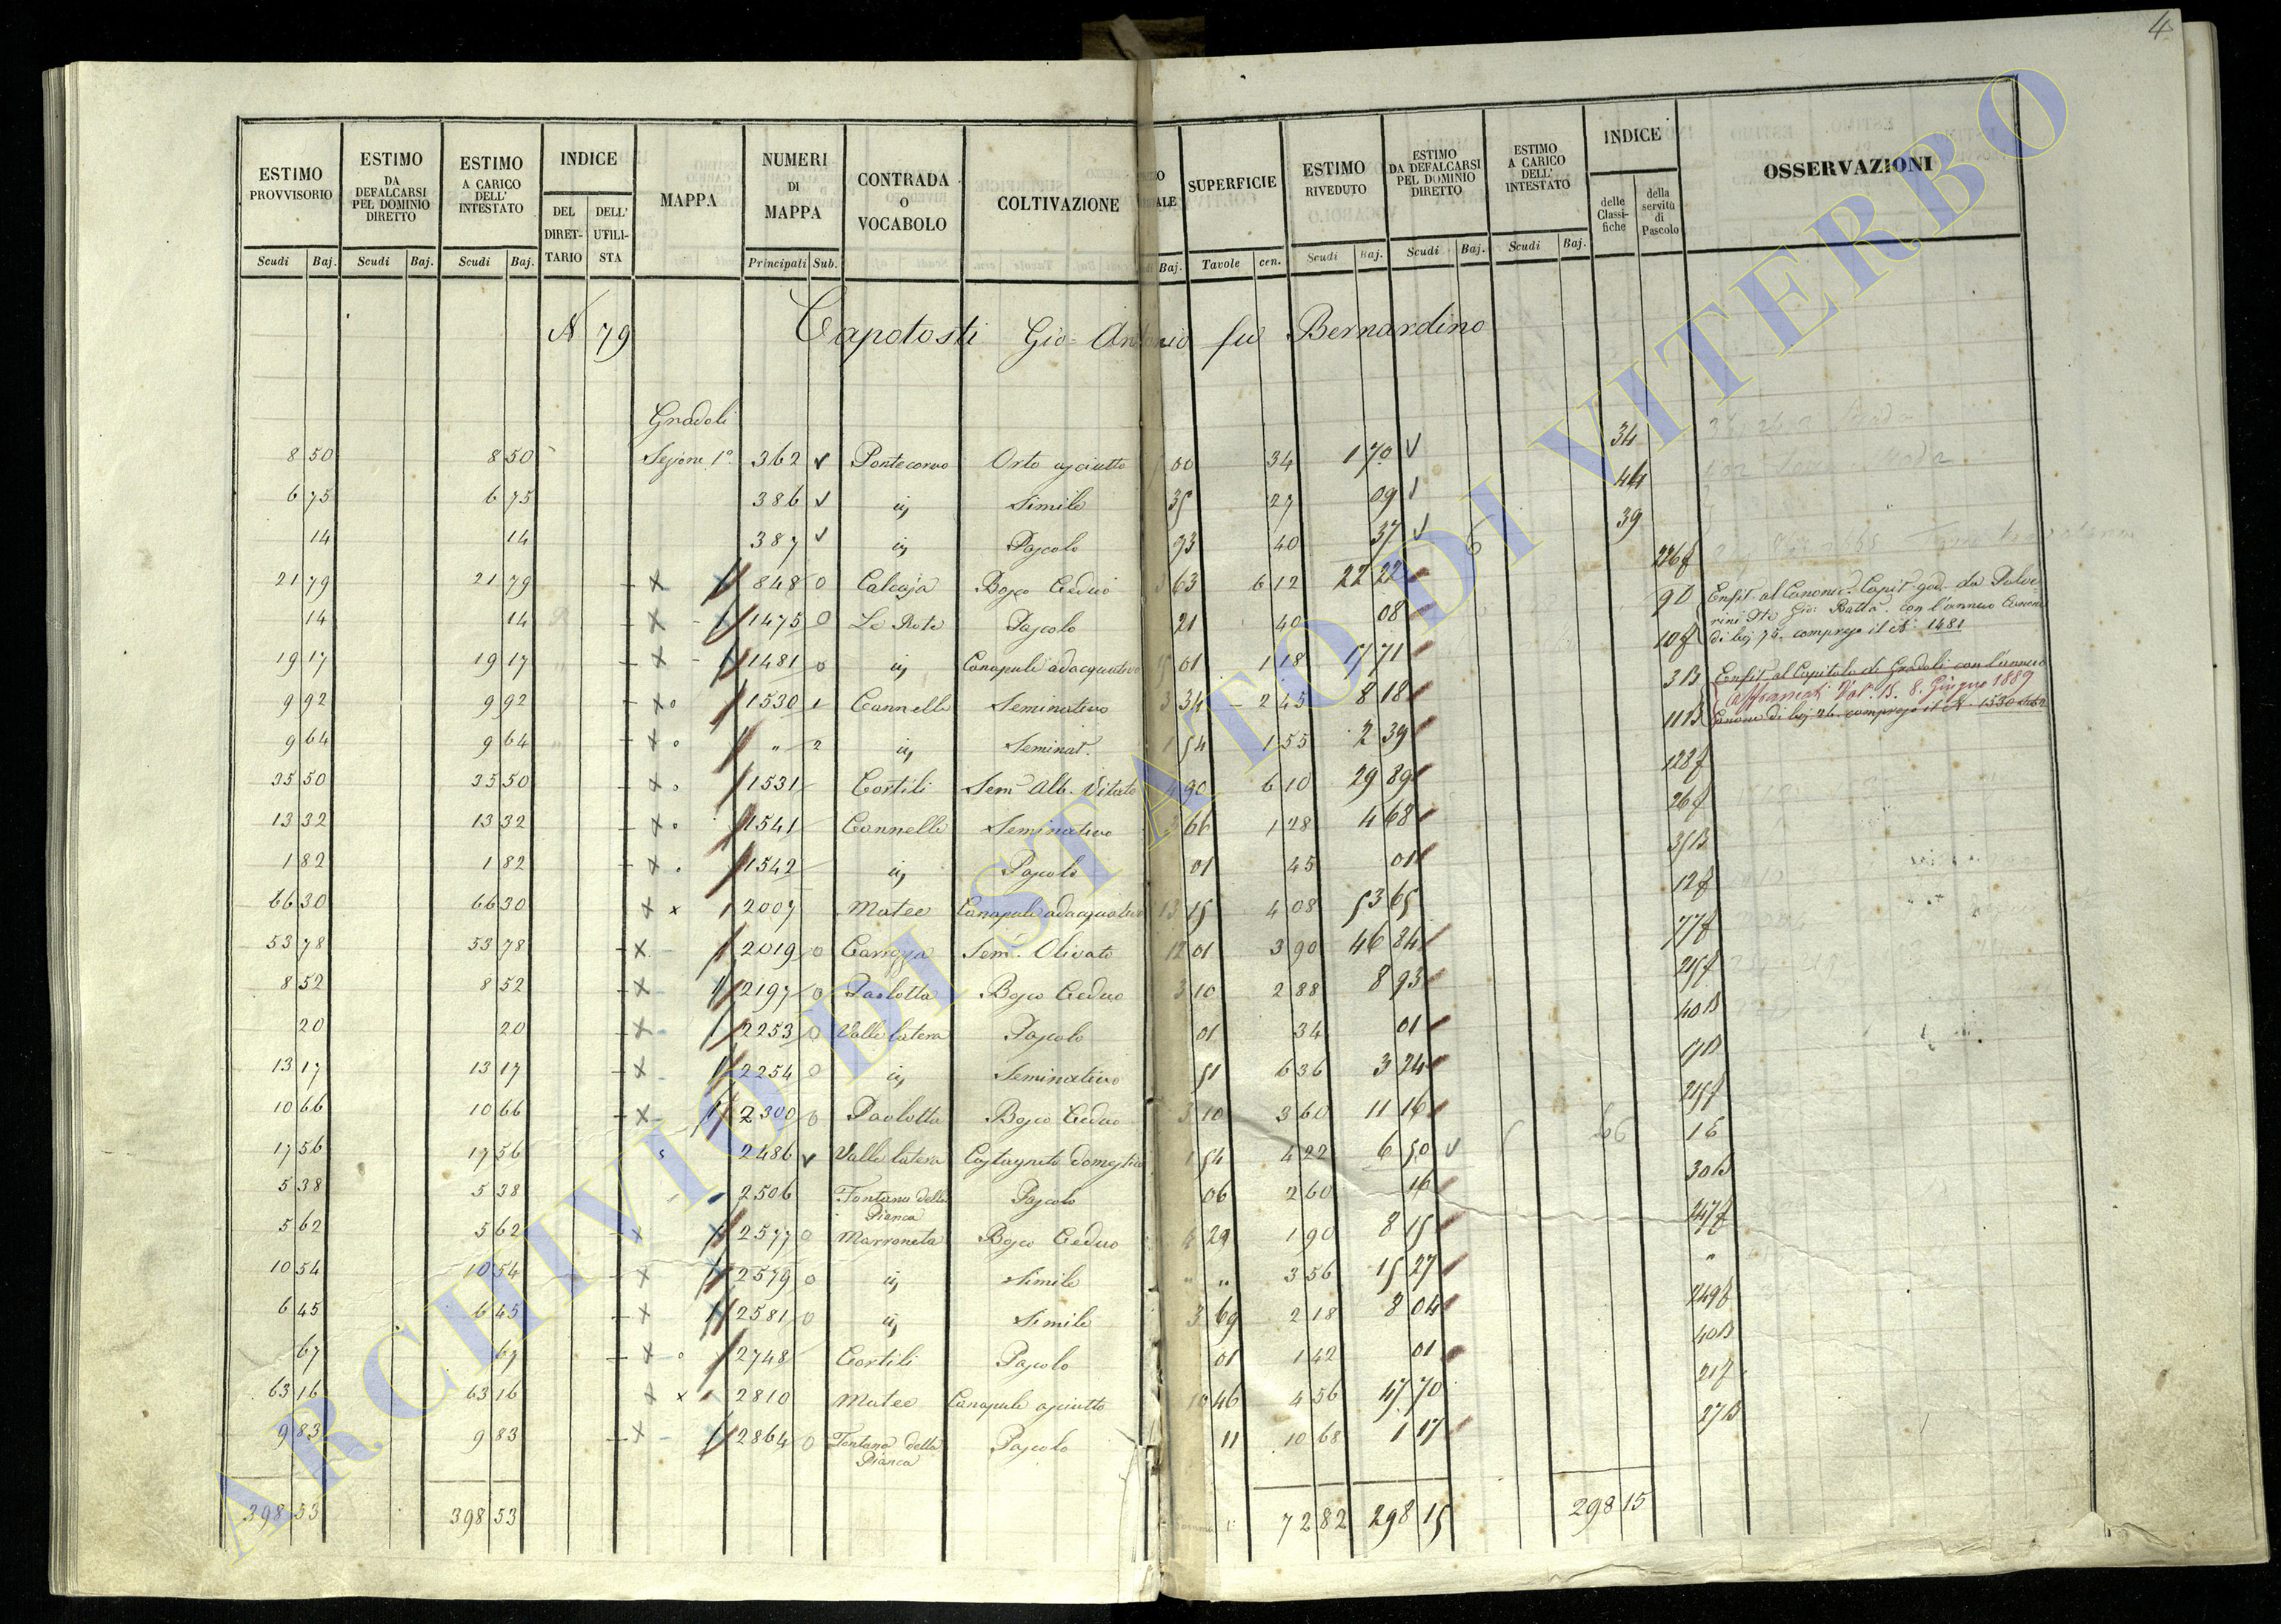 4
ESTIMO PROVVISORIO | ESTIMO DA DEFALCARSI PEL DOMINIO DIRETTO | ESTIMO A CARICO DELL' INTESTATO | INDICE DEL DIRET-TARIO | DELL' UTILI-STA | MAPPA | NUMERI DI MAPPA | CONTRADA O VOCABOLO | COLTIVAZIONE | SUPERFICIE | ESTIMO RIVEDUTO | ESTIMO DA DEFALCARSI PEL DOMINIO DIRETTO | ESTIMO A CARICO DELL' INTESTATO | INDICE delle Classi-fiche | della servitù di Pascolo | OSSERVAZIONI
Scudi | Baj. | Scudi | Baj. | Scudi | Baj. | Principali | Sub. | Baj. | Tavole | cen. | Scudi | Baj. | Scudi | Baj. | Scudi | Baj.
N 79 Capotosti Gio. Antonio fu Bernardino
Gradoli
8 50 | 8 50 | Sezione 1a | 362 | Pontecorvo | Orto asciutto | 00 | 34 | 1 70 | 34
6 75 | 6 75 | 386 | id | Simile | 35 | 27 | 09 | 44
14 | 14 | 387 | id | Pascolo | 93 | 40 | 37 | 39
21 79 | 21 79 | 848 0 | Calcaja | Bosco Ceduo | 63 | 6 12 | 22 22 | 226f
14 | 14 | 1475 0 | Le Rote | Pascolo | 21 | 40 | 08 | 9D
19 17 | 19 17 | 1481 0 | id | Canapule adacquativo | 01 | 1 18 | 17 71 | 10f
9 92 | 9 92 | 1530 1 | Cannelle | Seminativo | 3 34 | 2 45 | 8 18 | 3B
9 64 | 9 64 | " 2 | id | Seminat. | 1 54 | 1 55 | 2 39 | 11B
35 50 | 35 50 | 1531 | Cortili | Sem. Alb. Vitato | 4 90 | 6 10 | 29 89 | 128f
13 32 | 13 32 | 1541 | Cannelle | Seminativo | 3 66 | 1 28 | 4 68 | 26f
1 82 | 1 82 | 1542 | id | Pascolo | 01 | 45 | 01 | 35B
66 30 | 66 30 | 2007 | Matee | Canapule adacquativo | 13 15 | 4 08 | 53 65 | 12f
53 78 | 53 78 | 2019 0 | Sem. Olivato | 12 01 | 3 90 | 46 84 | 77f
8 52 | 8 52 | 2197 0 | Paolotta | Bosco Ceduo | 3 10 | 2 88 | 8 93 | 215f
20 | 20 | 2253 0 | Valle latera | Pascolo | 01 | 34 | 01 | 40B
13 17 | 13 17 | 2254 0 | id | Seminativo | 51 | 6 36 | 3 24
10 66 | 10 66 | 2300 0 | Paolotta | Bosco Ceduo | 3 10 | 3 60 | 11 16 | 215f
17 56 | 17 56 | 2486 | Valle latera | Castagneto domestico | 1 54 | 4 22 | 6 50
5 38 | 5 38 | 2506 | Fontana della Pianca | Pascolo | 06 | 2 60 | 16 | 30B
5 62 | 5 62 | 2577 0 | Marroneta | Bosco Ceduo | 4 29 | 1 90 | 8 15 | 247f
10 54 | 10 54 | 2579 0 | id | Simile | " " | 3 56 | 15 27 | "
6 45 | 6 45 | 2581 0 | id | Simile | 3 69 | 2 18 | 8 04 | 249f
67 | 67 | 2748 | Cortili | Pascolo | 01 | 1 42 | 01 | 40B
63 16 | 63 16 | 2810 | Matee | Canapule asciutto | 10 46 | 4 56 | 47 70 | 21f
9 83 | 9 83 | 2864 0 | Fontana della Pianca | Pascolo | 11 | 10 68 | 1 17 | 27B
398 53 | 398 53 | 72 82 | 298 15 | 298 15
Enfit. al Canonic. Capit. god. da Polve-
rini Gio: Batta. con l'annuo Canone
di baj 75. compreso il N. 1481
Enfit. al Capitolo di Gradoli con l'annuo
8. Giugno 1889
Canone di baj 26. compreso il N. 1530
ARCHIVIO DI STATO DI VITERBO